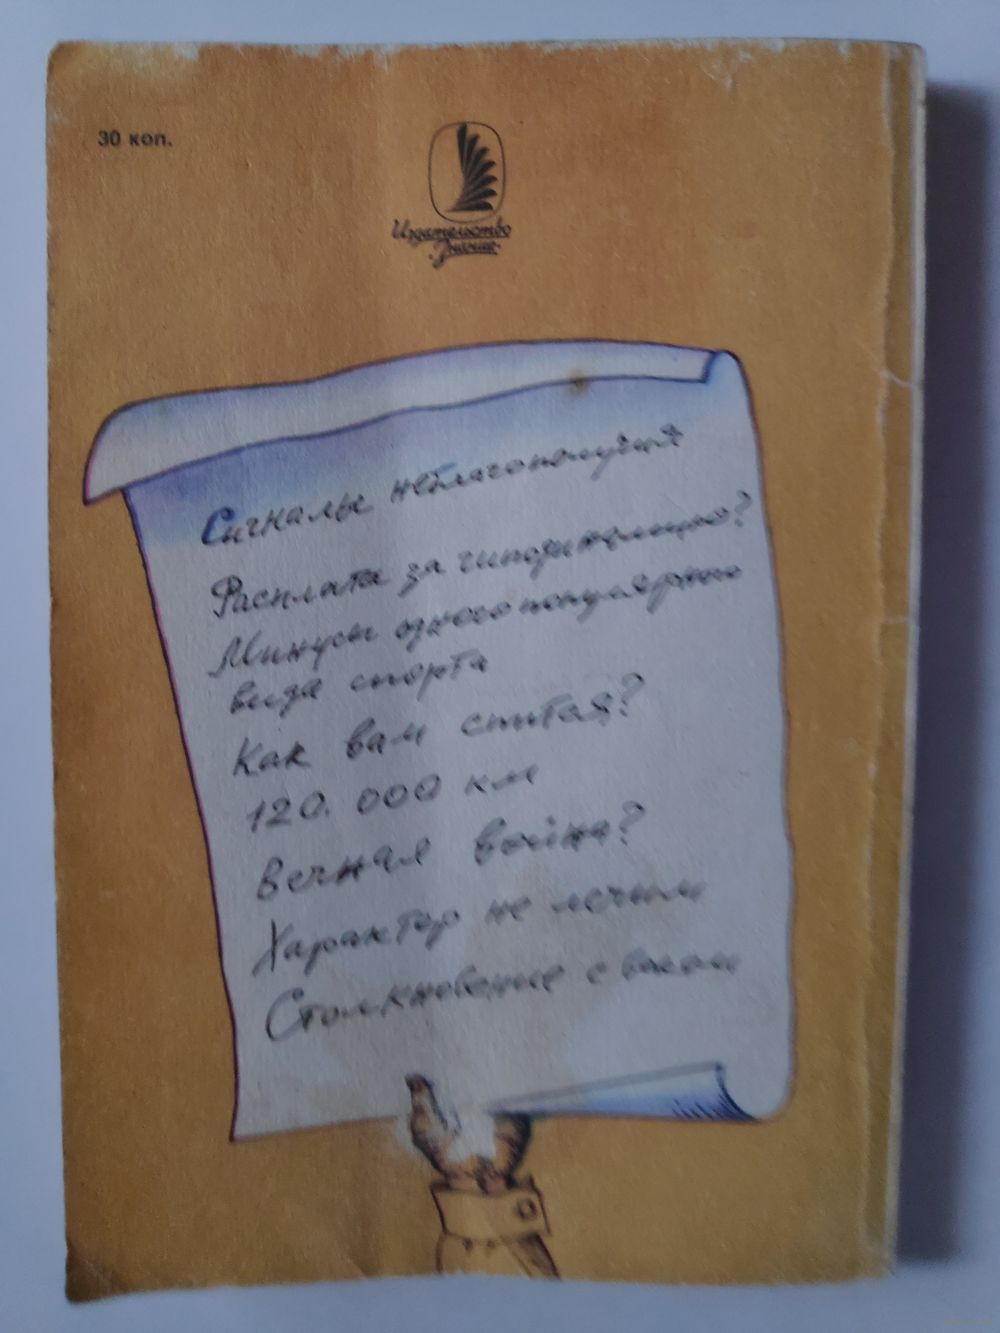 30 коп.
Издательство
Знание
Сигналы неблагополучия
Расплата за гиподинамию?
Минусы одного популярного
вида спорта
Как вам спится?
120.000 км
Вечная война?
Характер не лечим
Столкновение с веком